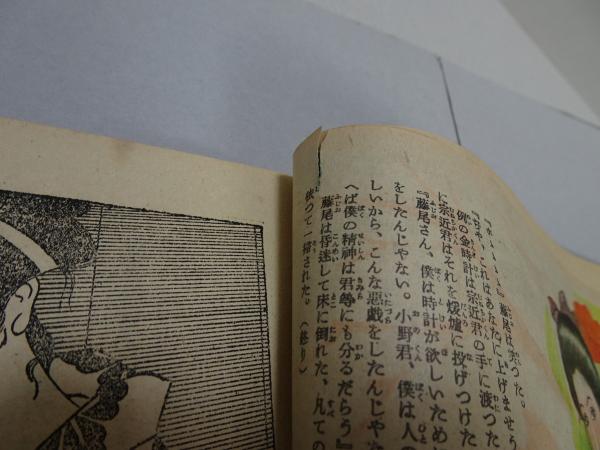 『ホヽヽヽと』藤尾は笑つた。
『ぢや、これはあなたに上げませう
例の金時計は宗近君の手に渡つた
に宗近君はそれを煖爐に投げつけた
『藤尾さん、僕は時計が欲しいため
をしたんじやない。小野君、僕は人の
しいから、こんな惡戯をしたんじやた
へば僕の精神は君等にも分るだらう』
藤尾は昏迷して床に倒れた、凡ての
依つて一掃された。(終り)